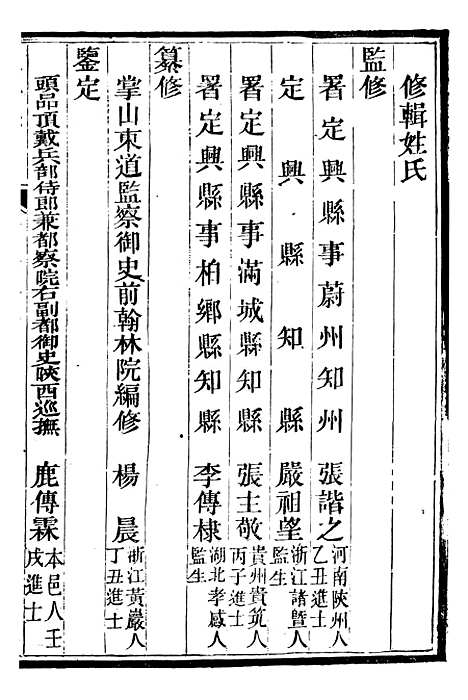 修輯姓氏
監修
署定興縣事蔚州知州 張諧之 河南陝州人乙丑進士
定興縣知縣 嚴祖望 浙江諸暨人監生
署定興縣事滿城縣知縣 張主敬 貴州貴筑人丙子進士
署定興縣事柏鄉縣知縣 李傳棣 湖北孝感人監生
纂修
掌山東道監察御史前翰林院編修 楊晨 浙江黃巖人丁丑進士
鑒定
頭品頂戴兵部侍郎兼都察院右副都御史陝西巡撫 鹿傳霖 本邑人壬戌進士